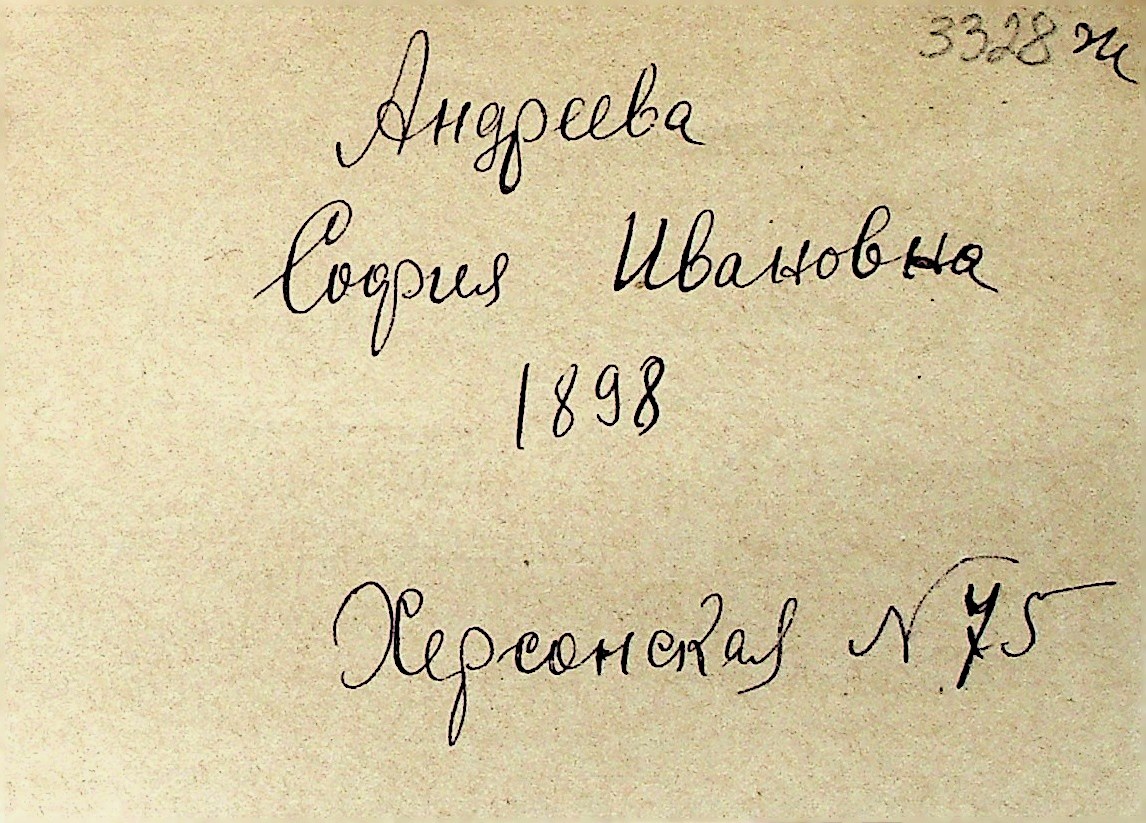 3328 ж
Андреева
София Ивановна
1898
Херсонская N 75